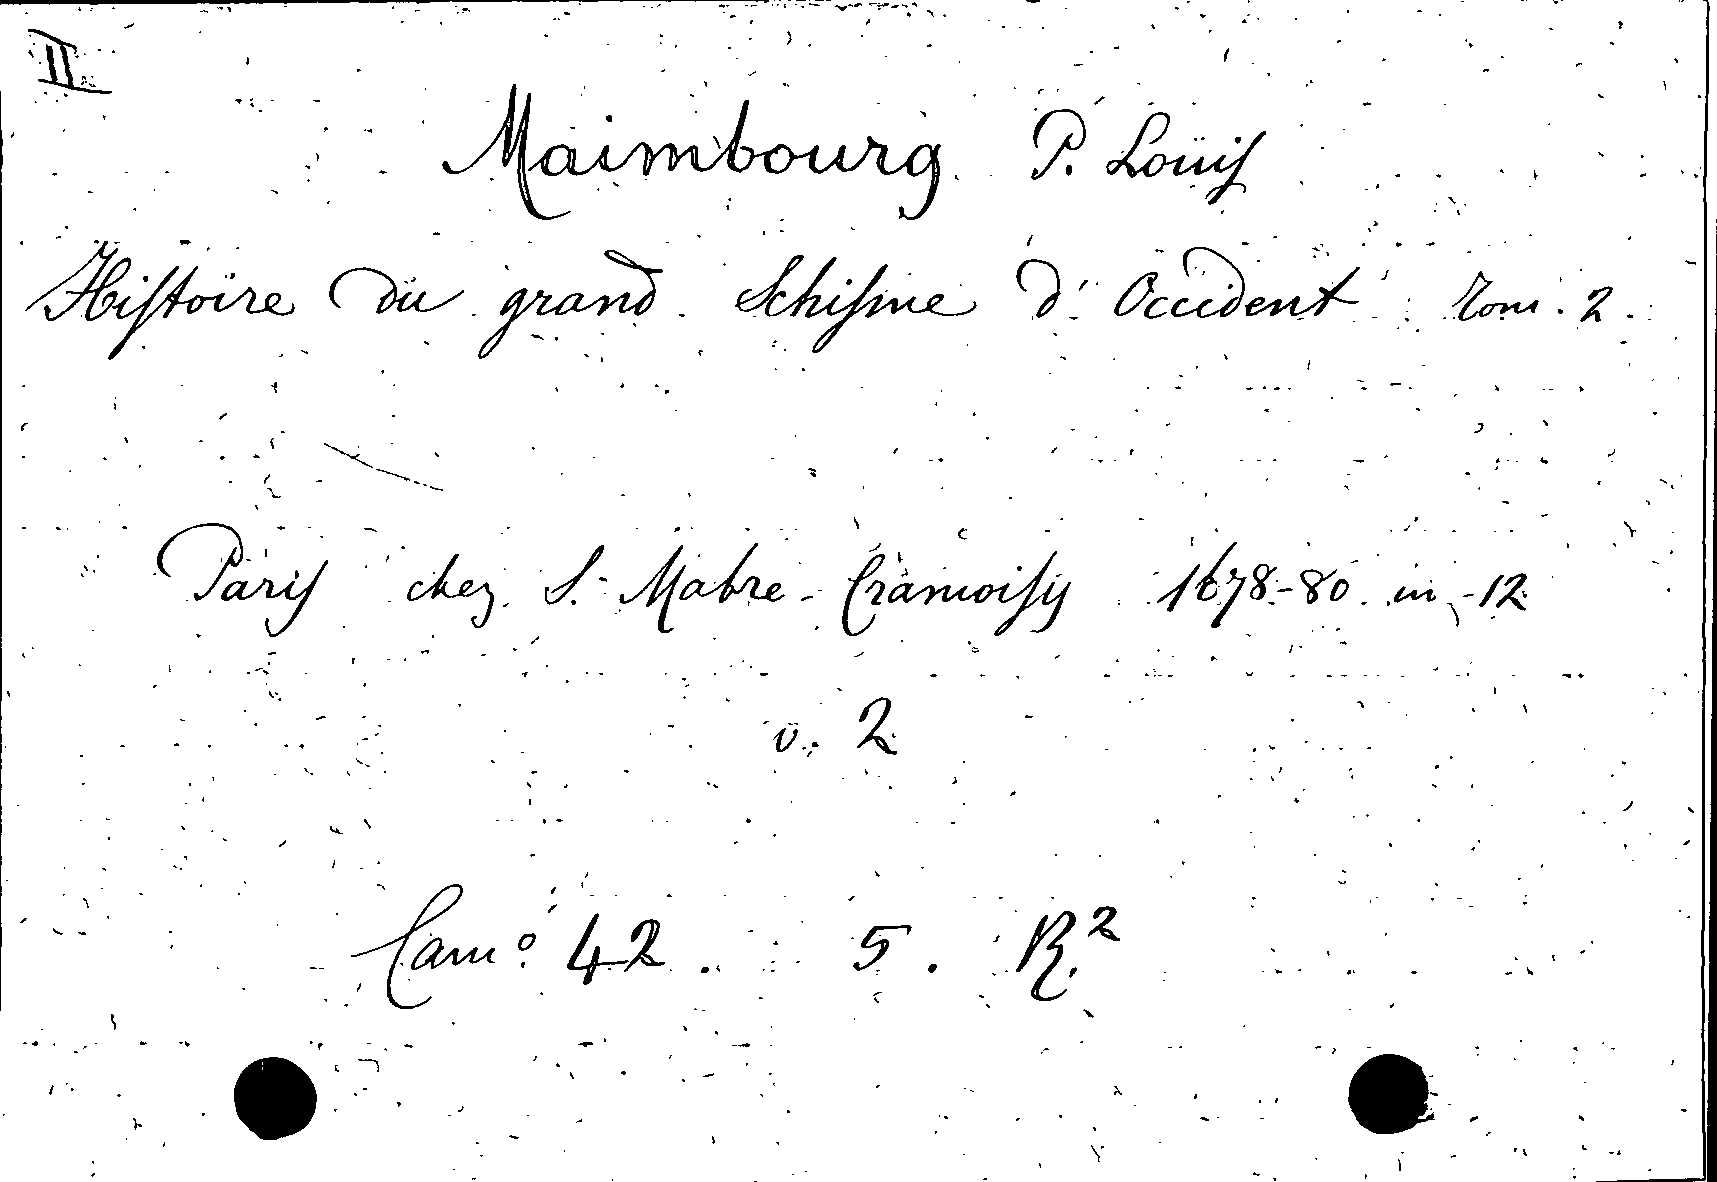 II
Maimbourg P. Louis
Histoire du grand Schisme d'Occident tom. 2.
Paris chez S. Mabre-Cramoisy 1678-80 in-12
v. 2
Camº 42. 5. R.²